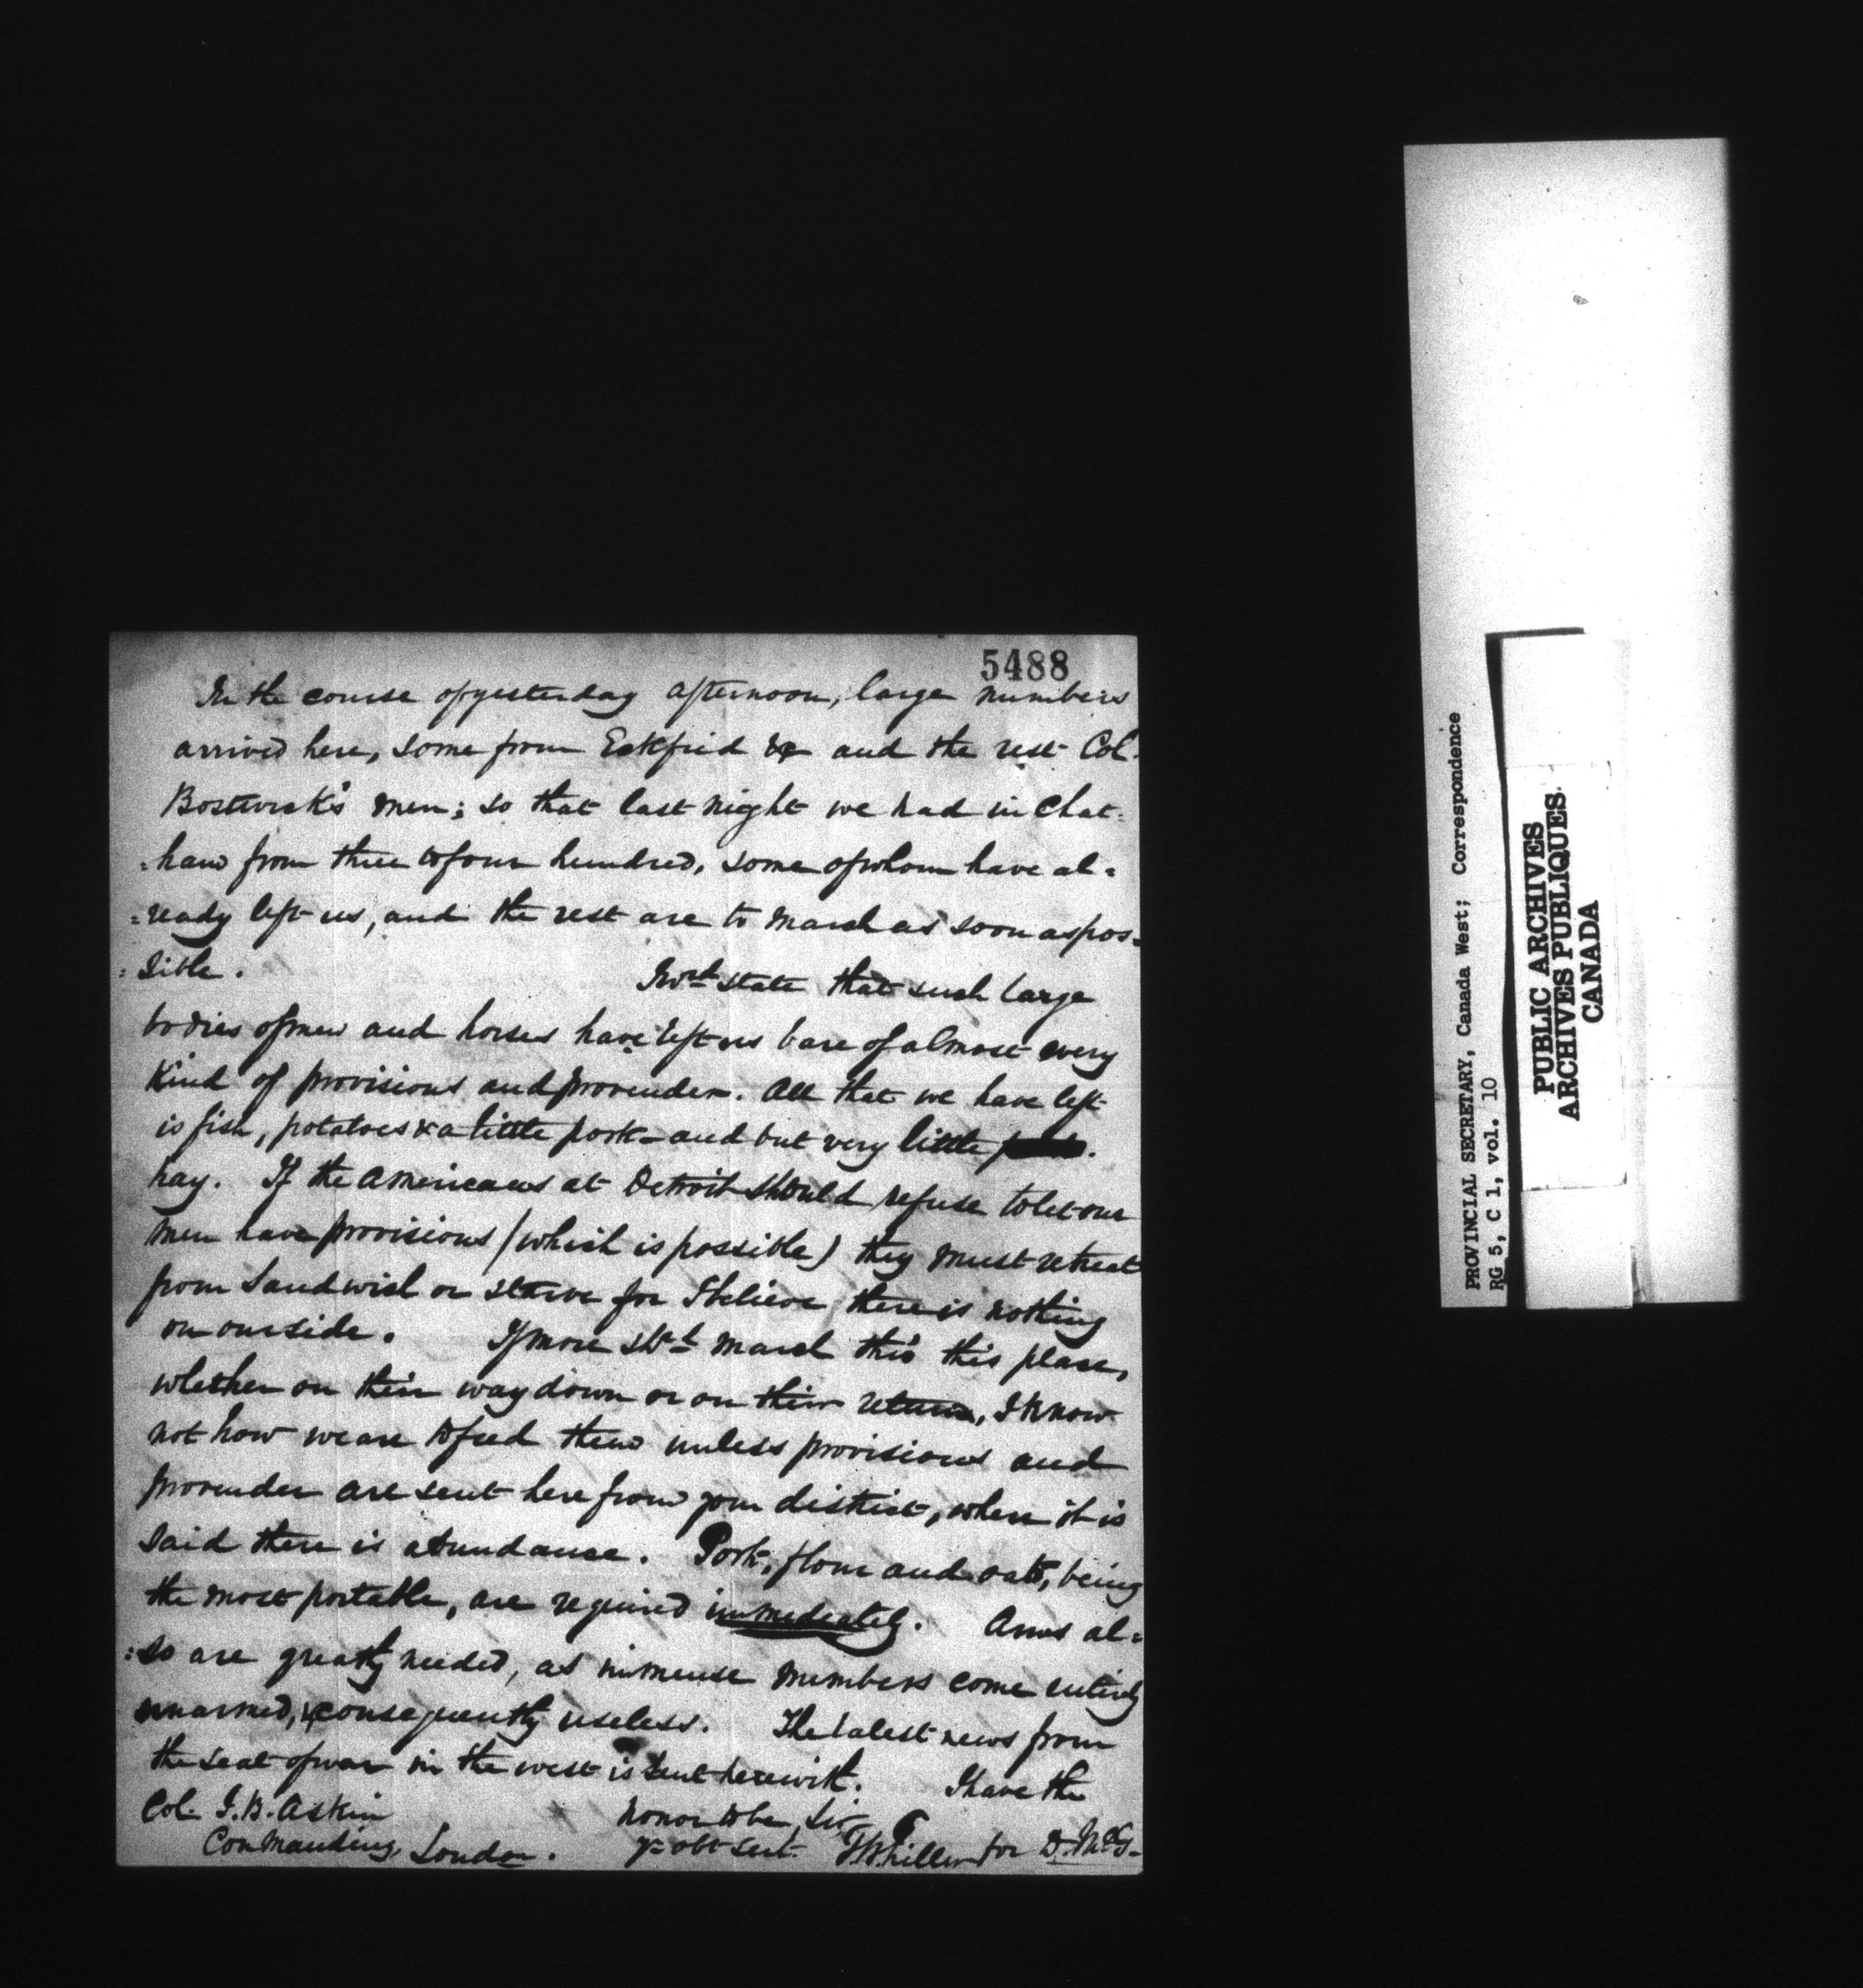 5488
In the course of yesterday afternoon, large numbers
arrived here, some from Eckfrid and the rest Col.
Bostwick's men; so that last night we had in Chat=
=ham from three to four hundred, some of whom have al=
=ready left us, and the rest are to march as soon as pos=
=sible. I wd. state that such large
bodies of men and horses have left us bare of almost every
kind of provisions and provender. All that we have left
is fish, potatoes & a little pork - and but very little
hay. If the Americans at Detroit should refuse to let our
men have provisions (which is possible) they must retreat
from Sandwich or starve for I believe there is nothing
on our side. If more shd. march thro' this place,
whether on their way down or on their return, I know
not how we are to feed them unless provisions and
provender are sent here from your district, where it is
said there is abundance. Pork, flour and oats, being
the most portable, are required immediately. Arms al=
=so are greatly needed, as immense numbers come entirely
unarmed, & consequently useless. The latest news from
the seat of war in the west is sent herewith. I have the
Col. J.B. Askin honor to be, Sir,
Commanding, London. yr obt Sert. for D. McG.
PROVINCIAL SECRETARY, Canada West; Correspondence
RG 5, C 1, vol. 10
PUBLIC ARCHIVES
ARCHIVES PUBLIQUES
CANADA